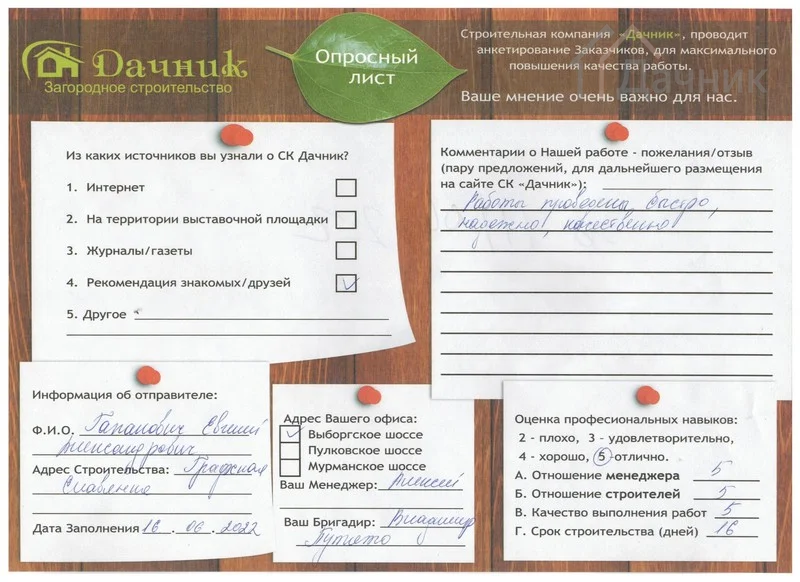 Дачник
Загородное строительство
Опросный
лист
Строительная компания «Дачник», проводит
анкетирование Заказчиков, для максимального
повышения качества работы.
Ваше мнение очень важно для нас.
Дачник
Из каких источников вы узнали о СК Дачник?
1. Интернет
2. На территории выставочной площадки
3. Журналы/газеты
4. Рекомендация знакомых/друзей
5. Другое
Комментарии о Нашей работе - пожелания/отзыв
(пару предложений, для дальнейшего размещения
на сайте СК «Дачник»):
Работы проведены быстро,
надежно, качественно
Информация об отправителе:
Ф.И.О. Гапанович Евгений
Александрович
Адрес Строительства: Графская
Славянка
Дата Заполнения 16 . 06 . 2022
Адрес Вашего офиса:
Выборгское шоссе
Пулковское шоссе
Мурманское шоссе
Ваш Менеджер: Алексей
Ваш Бригадир: Владимир
Оценка професиональных навыков:
2 - плохо, 3 - удовлетворительно,
4 - хорошо, 5 - отлично.
А. Отношение менеджера 5
Б. Отношение строителей 5
В. Качество выполнения работ 5
Г. Срок строительства (дней) 16